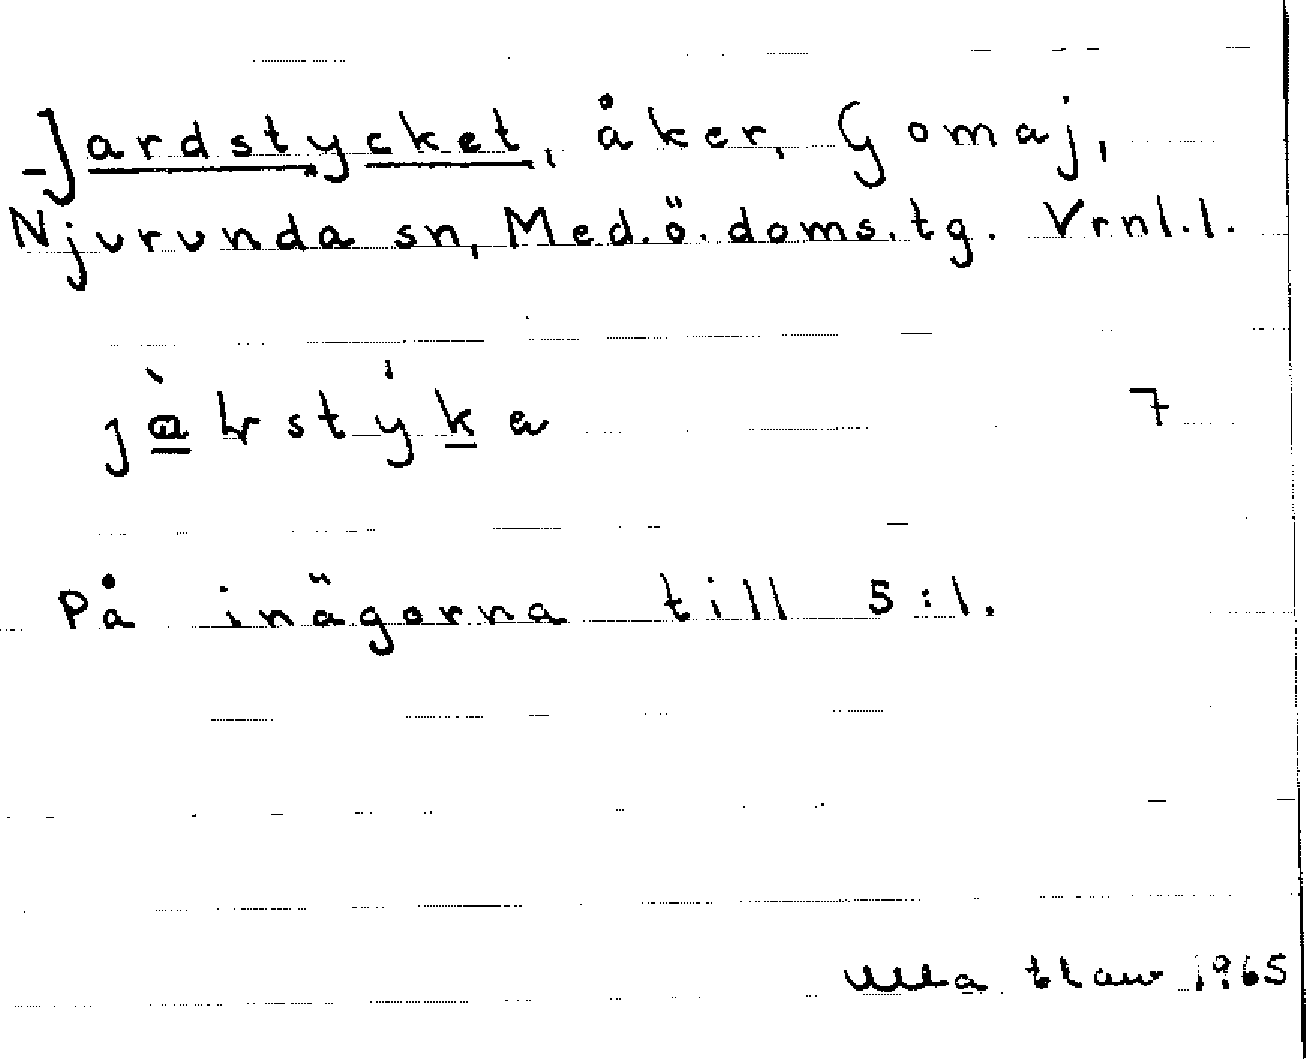 Jardstycket, åker, Gomaj,
Njurunda sn, Med.ö.doms.tg. Vrnl.l.
7
På inägorna till 5:1.
Ulla 1965